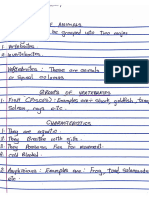 OF ANIMALS
be grouped into Two major
1. Vertebrates
2. Invertebrates
Vertebrates: These are animals
Spinal columns.
GROUPS OF VERTEBRATES
1. Fish (Pisces): Examples are Shark, goldfish,
Salmon, rays etc.
CHARACTERISTICS
1. They are aquatic.
2. They Breathe with gills.
3. They Possess Fins for movement.
4. Cold Blooded
2. Amphibians: Examples are: Frog, Toad, Salamander
etc.